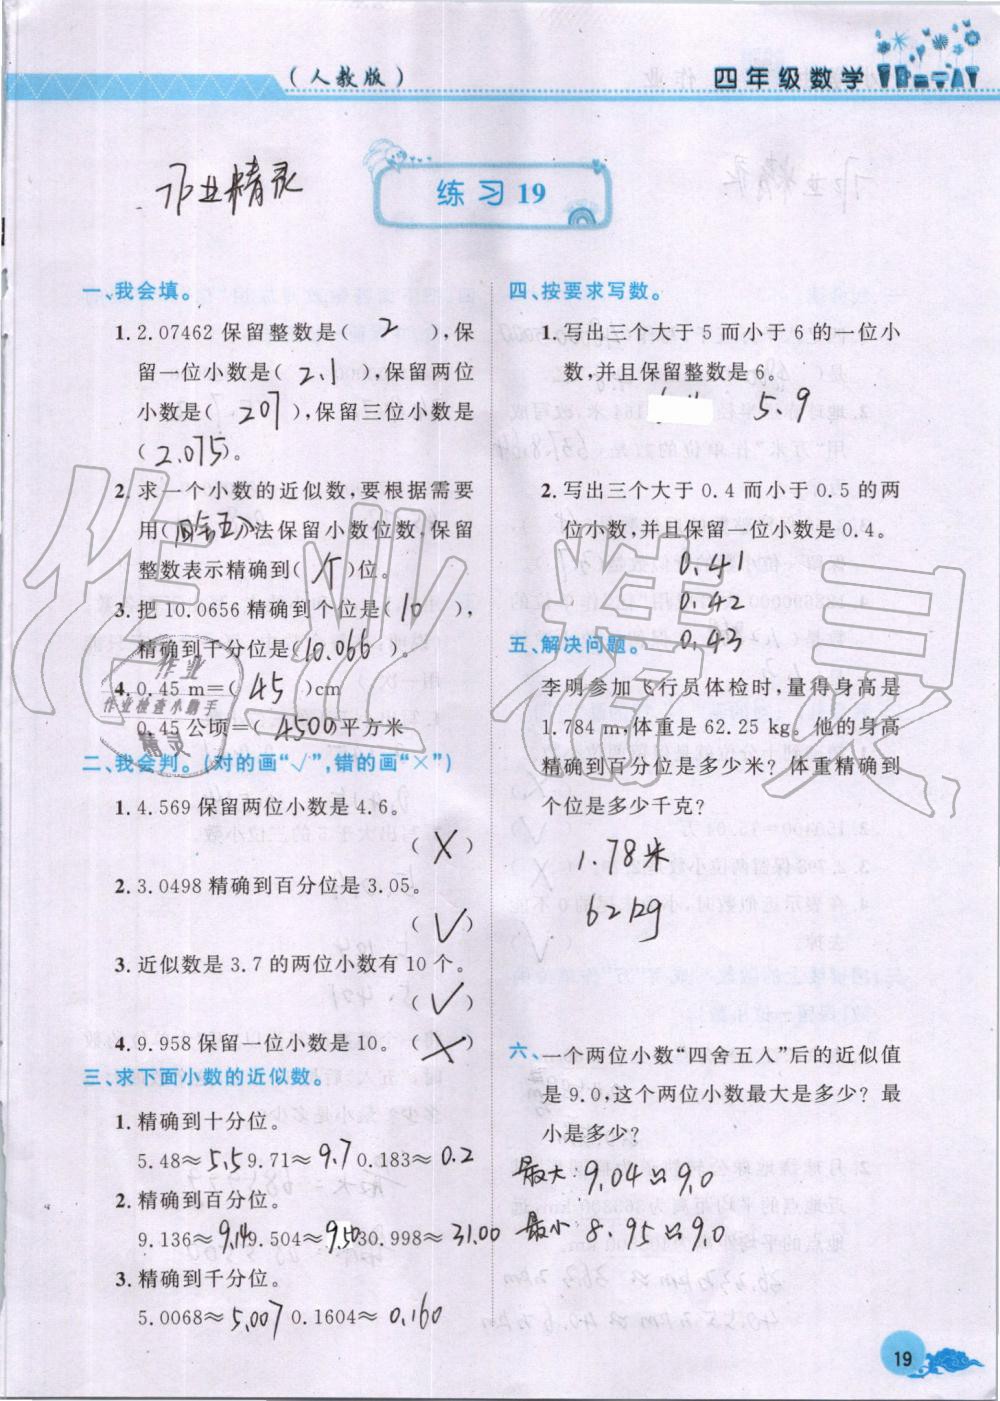 (人教版)
四年级数学
作业精灵
练习19
一、我会填。
1.2.07462保留整数是( 2 ),保
留一位小数是( 2.1 ),保留两位
小数是( 2.07 ),保留三位小数是
( 2.075 )。
2.求一个小数的近似数,要根据需要
用(四舍五入)法保留小数位数,保留
整数表示精确到( 个 )位。
3.把10.0656精确到个位是( 10 ),
精确到千分位是(10.066)。
4.0.45 m=( 45 )cm
0.45公顷=( 4500 )平方米
二、我会判。(对的画“√”,错的画“×”)
1.4.569保留两位小数是4.6。
( × )
2.3.0498精确到百分位是3.05。
( √ )
3.近似数是3.7的两位小数有10个。
( √ )
4.9.958保留一位小数是10。( × )
三、求下面小数的近似数。
1.精确到十分位。
5.48≈5.5 9.71≈9.7 0.183≈0.2
2.精确到百分位。
9.136≈9.14 9.504≈9.50 30.998≈31.00
3.精确到千分位。
5.0068≈5.007 0.1604≈0.160
四、按要求写数。
1.写出三个大于5而小于6的一位小
数,并且保留整数是6。
5.9
2.写出三个大于0.4而小于0.5的两
位小数,并且保留一位小数是0.4。
0.41
0.42
0.43
五、解决问题。
李明参加飞行员体检时,量得身高是
1.784 m,体重是62.25 kg。他的身高
精确到百分位是多少米?体重精确到
个位是多少千克?
1.78米
62kg
六、一个两位小数“四舍五入”后的近似值
是9.0,这个两位小数最大是多少?最
小是多少?
最大:9.04≈9.0
最小 8.95≈9.0
作业
作业检查小助手
精灵
作业精灵
19